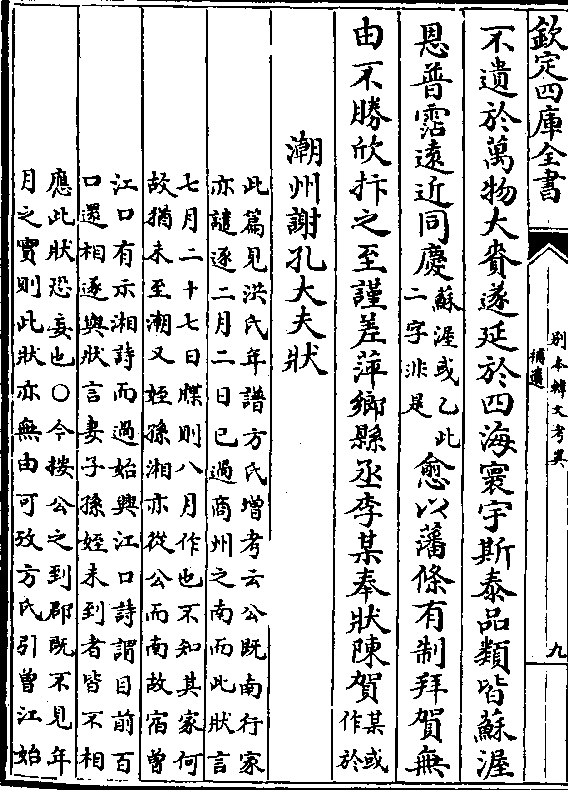 欽定四庫全書
別本韓文考異
補遺
九
不遺於萬物大賚遂延於四海寰宇斯泰品類皆蘇渥
恩普霑遠近同慶蘇渥或乙此
二字非是愈以藩條有制拜賀無
由不勝欣抃之至謹差萍鄉縣丞李某奉狀陳賀某或
作於
潮州謝孔大夫狀
此篇見洪氏年譜方氏增考云公既南行家
亦譴逐二月二日已過商州之南而此狀言
七月二十七日牒則八月作也不知其家何
故猶未至潮又姪孫湘亦從公而南故宿曾
江口有示湘詩而過始興江口詩謂目前百
口還相逐與狀言妻子孫姪未到者皆不相
應此狀恐妄也〇今按公之到郡既不見年
月之實則此狀亦無由可攷方氏引曾江始